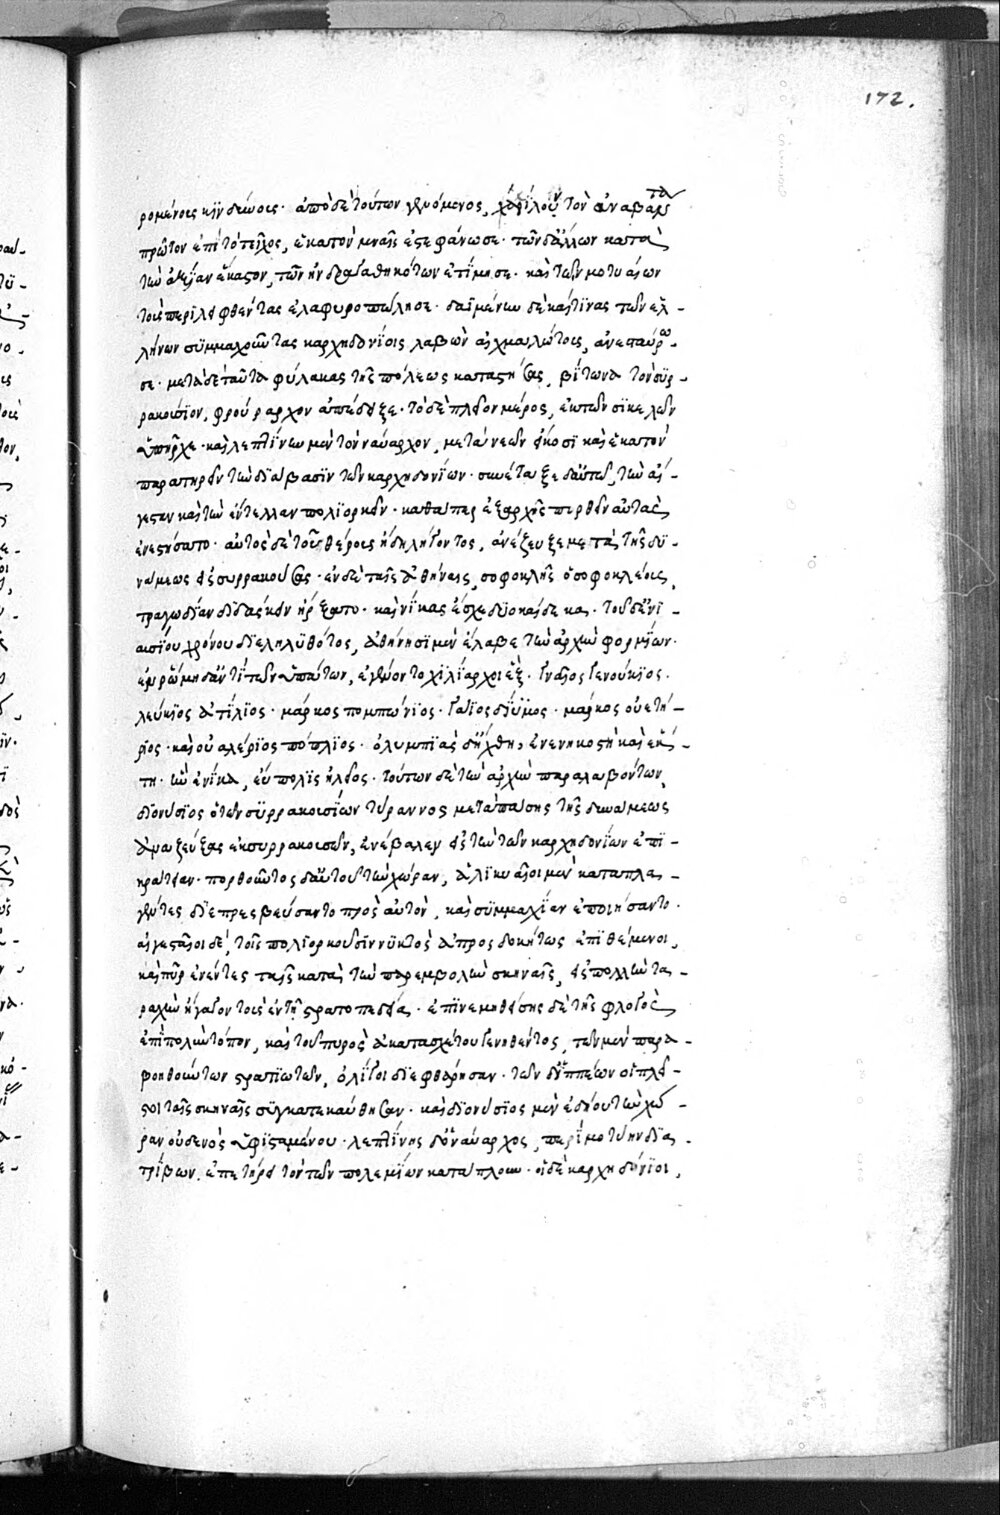 172.
ρομένοις κινδύνοις· ἀπὸ δὲ τούτων γενόμενος, ἀρχύλον τὸν ἀναβάντα
πρῶτον ἐπὶ τὸ τεῖχος, ἑκατὸν μναῖς ἐστεφάνωσε· τῶν δἄλλων κατὰ
τὴν ἀξίαν ἕκαστον, τῶν ἠνδραγαθηκότων ἐτίμησε· καὶ τῶν μοτυαίων
τοὺς περιλειφθέντας ἐλαφυροπώλησε· δαϊμένην δὲ καὶ τινας τῶν ἑλ-
λήνων συμμαχοῦντας καρχηδονίοις λαβὼν αἰχμαλώτους, ἀνεσταύρω-
σε· μετὰ δὲ ταῦτα φύλακας τῆς πόλεως καταστήσας, βίτωνα τὸν συρ-
ρακούσιον, φρούραρχον ἀπέδειξε· τὸ δὲ πλεῖον μέρος, ἐκ τῶν σικελῶν
ὑπῆρχε· καὶ λεπτίνην μὲν τὸν ναύαρχον, μετὰ νεῶν εἴκοσι καὶ ἑκατὸν
παρατηρεῖν τὴν διάβασιν τῶν καρχηδονίων· συνέταξε δαὐτῷ, τὴν αἴ-
γεσταν καὶ τὴν ἔντελλαν πολιορκεῖν· καθάπερ ἐξαρχῆς πορθεῖν αὐτὰς
ἐνεστήσατο· αὐτὸς δὲ τοῦ θέρους ἤδη λήγοντος, ἀνέζευξε μετὰ τῆς δυ-
νάμεως εἰς συρρακούσας· ἐν δὲ ταῖς ἀθήναις, σοφοκλῆς ὁ σοφοκλέους,
τραγωδίαν διδάσκειν ἤρξατο· καὶ νίκας ἔσχε δυοκαίδεκα· τοῦ δἐνι-
αυσίου χρόνου διεληλυθότος, ἀθήνησι μὲν ἔλαβε τὴν ἀρχὴν φορμίων·
ἐν ῥώμη δἀντὶ τῶν ὑπάτων, ἐγένοντο χιλίαρχοι ἕξ· γνάϊος γενούκιος·
λεύκιος ἀτίλιος· μάρκος πομπώνιος· γάϊος δυίλιος· μάρκος οὐετή-
ριος· καὶ οὐαλέριος πόπλιος· ὀλυμπιὰς δἤχθη, ἐνενηκοστὴ καὶ ἕκ-
τη· ἣν ἐνίκα, εὔπολις ἠλεῖος· τούτων δὲ τὴν ἀρχὴν παραλαβόντων,
διονύσιος ὁ τῶν συρρακουσίων τύραννος μετὰ πάσης τῆς δυνάμεως
ἀναζεύξας ἐκ συρρακουσῶν, ἐνέβαλεν εἰς τὴν τῶν καρχηδονίων ἐπι-
κράτειαν· πορθοῦντος δαὐτοῦ τὴν χώραν, ἁλικυαῖοι μὲν καταπλα-
γέντες διεπρεσβεύσαντο πρὸς αὐτὸν, καὶ συμμαχίαν ἐποιήσαντο·
αἰγεσταῖοι δὲ, τοῖς πολιορκοῦσιν νυκτὸς ἀπροσδοκήτως ἐπιθέμενοι,
καὶ πῦρ ἐνέντες ταῖς κατὰ τὴν παρεμβολὴν σκηναῖς, εἰς πολλὴν τα-
ραχὴν ἤγαγον τοὺς ἐν τῇ στρατοπεδείᾳ· ἐπινεμηθείσης δὲ τῆς φλογὸς
ἐπὶ πολὺν τόπον, καὶ τοῦ πυρὸς ἀκατασχέτου γενηθέντος, τῶν μὲν παρα-
βοηθούντων στρατιωτῶν, ὀλίγοι διεφθάρησαν· τῶν δἵππέων οἱ πλεῖ-
στοι ταῖς σκηναῖς συγκατεκαύθησαν· καὶ διονύσιος μὲν ἐδήου τὴν χώ-
ραν οὐδενὸς ὑφισταμένου· λεπτίνης δὁ ναύαρχος, περὶ μοτύην δια-
τρίβων, ἐπετήρει τὸν τῶν πολεμίων κατάπλουν· οἱ δὲ καρχηδόνιοι,